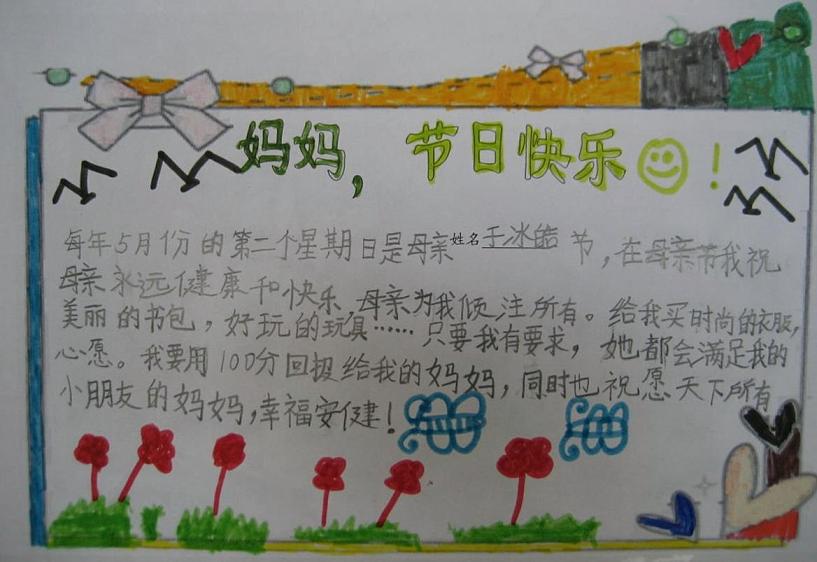 妈妈，节日快乐！
每年5月份的第二个星期日是母亲姓名于冰皓节，在母亲节我祝
母亲永远健康和快乐，母亲为我倾注所有。给我买时尚的衣服，
美丽的书包，好玩的玩具……只要我有要求，她都会满足我的
心愿。我要用100分回报给我的妈妈，同时也祝愿天下所有
小朋友的妈妈，幸福安健！